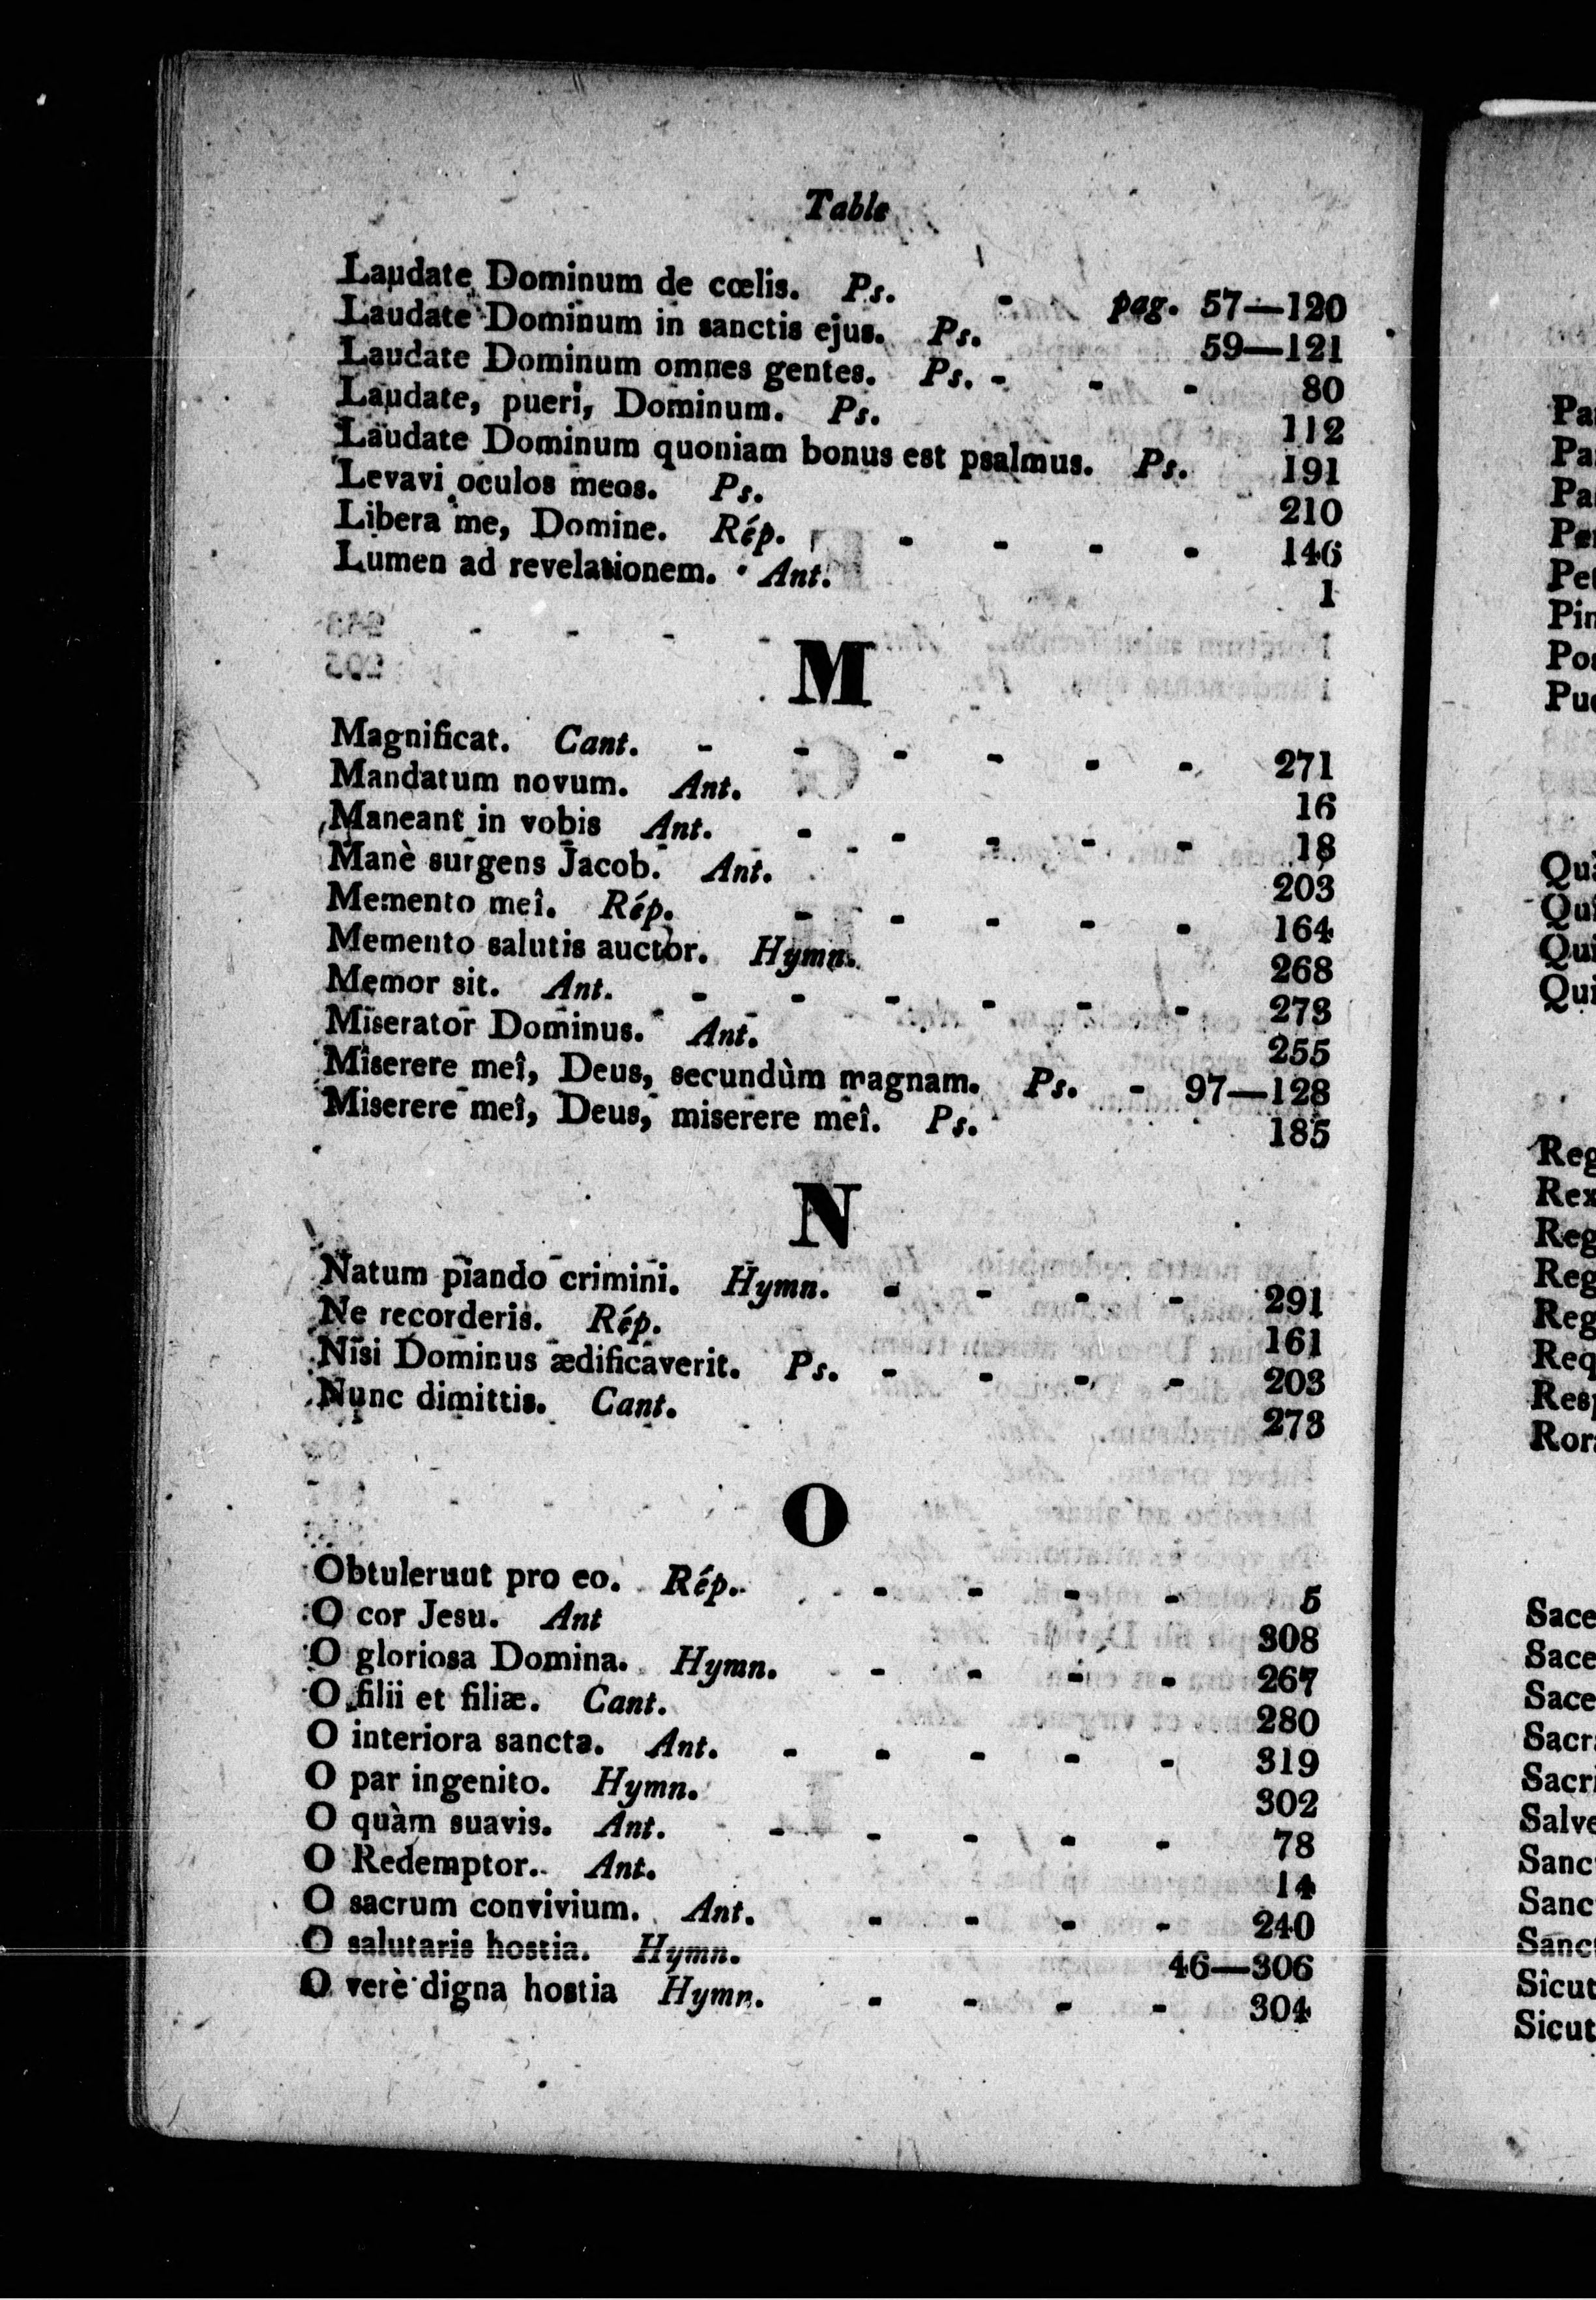 Table
Laudate Dominum de cœlis. Ps. - pag. 57—120
Laudate Dominum in sanctis ejus. Ps. 59—121
Laudate Dominum omnes gentes. Ps. - - - 80
Laudate, pueri, Dominum. Ps. 112
Laudate Dominum quoniam bonus est psalmus. Ps. 191
Levavi oculos meos. Ps. 210
Libera me, Domine. Rép. - - - - 146
Lumen ad revelationem. Ant. 1
M
Magnificat. Cant. - - - - - - 271
Mandatum novum. Ant. 16
Maneant in vobis Ant. - - - - - 18
Manè surgens Jacob. Ant. 203
Memento meî. Rép. - - - - - 164
Memento salutis auctor. Hymn. 268
Memor sit. Ant. - - - - - - 273
Miserator Dominus. Ant. 255
Miserere meî, Deus, secundùm magnam. Ps. - 97—128
Miserere meî, Deus, miserere meî. Ps. 185
N
Natum piando crimini. Hymn. - - - - 291
Ne recorderis. Rép. 161
Nisi Dominus ædificaverit. Ps. - - - - 203
Nunc dimittis. Cant. 273
O
Obtulerunt pro eo. Rép. - - - - 5
O cor Jesu. Ant 308
O gloriosa Domina. Hymn. - - - - 267
O filii et filiæ. Cant. 280
O interiora sancta. Ant. - - - - - 319
O par ingenito. Hymn. 302
O quàm suavis. Ant. - - - - - 78
O Redemptor. Ant. 14
O sacrum convivium. Ant. - - - - 240
O salutaris hostia. Hymn. 46—306
O verè digna hostia Hymn. - - - - 304